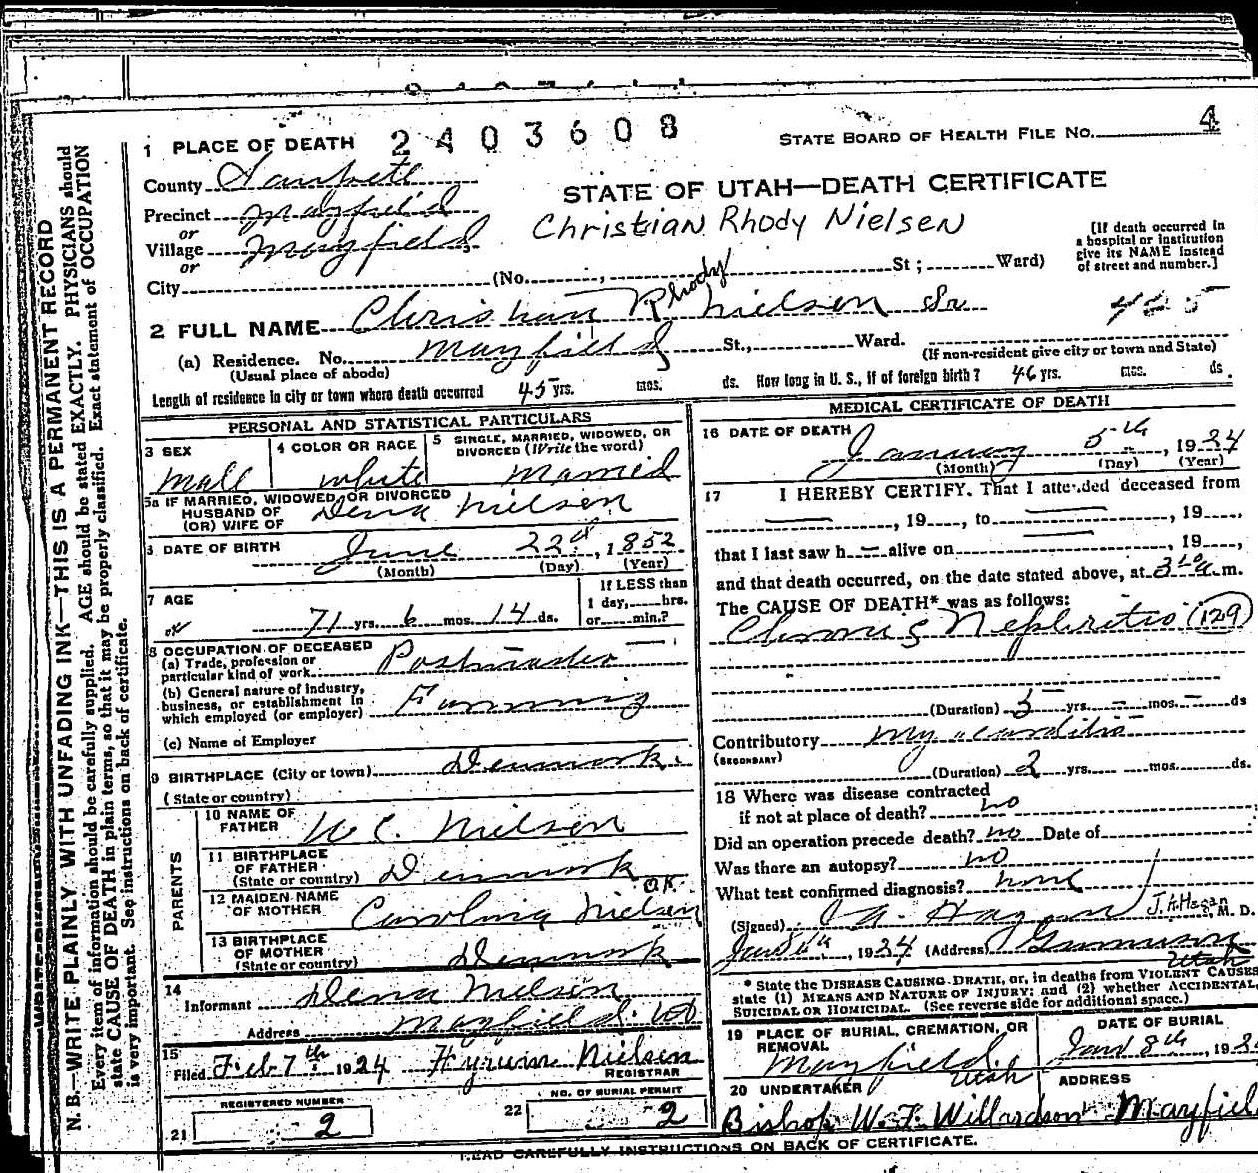 1 PLACE OF DEATH 2403608 STATE BOARD OF HEALTH FILE NO. 4
County Sanpete
STATE OF UTAH—DEATH CERTIFICATE
Precinct Mayfield
or
Christian Rhody Nielsen
Village Mayfield
or
[If death occurred in
a hospital or institution
give its NAME instead
of street and number.]
City (No. , St ; Ward)
425
2 FULL NAME Christian Rhody Nielsen Sr
(a) Residence. No. Mayfield St., Ward.
(Usual place of abode) (If non-resident give city or town and State)
Length of residence in city or town where death occurred 45 yrs. mos. ds. How long in U. S., if of foreign birth? 46 yrs. mos. ds.
PERSONAL AND STATISTICAL PARTICULARS
3 SEX 4 COLOR OR RACE 5 SINGLE, MARRIED, WIDOWED, OR
DIVORCED (Write the word)
Male white Married
5a IF MARRIED, WIDOWED, OR DIVORCED
HUSBAND OF
(OR) WIFE OF Dena Nielsen
6 DATE OF BIRTH June 22d, 1852
(Month) (Day) (Year)
7 AGE If LESS than
1 day, hrs.
71 yrs. 6 mos. 14 ds. or min.?
8 OCCUPATION OF DECEASED
(a) Trade, profession or
particular kind of work Postmaster
(b) General nature of industry,
business, or establishment in
which employed (or employer) Farming
(c) Name of Employer
9 BIRTHPLACE (City or town) Denmark.
(State or country)
PARENTS
10 NAME OF
FATHER Nielsen
11 BIRTHPLACE
OF FATHER
(State or country) Denmark
12 MAIDEN NAME
OF MOTHER Carolina Nielsen OK
13 BIRTHPLACE
OF MOTHER
(State or country) Denmark
14
Informant Dena Nielsen
Address Mayfield
15
Filed Feb 7th 1924 Hyrum Nielsen
REGISTRAR
REGISTERED NUMBER
21 2
NO. OF BURIAL PERMIT
22 2
MEDICAL CERTIFICATE OF DEATH
16 DATE OF DEATH January 5th, 1924
(Month) (Day) (Year)
17 I HEREBY CERTIFY. That I attended deceased from
, 19 , to , 19 ,
that I last saw h alive on , 19 ,
and that death occurred, on the date stated above, at 3 a m.
The CAUSE OF DEATH* was as follows:
Chronic Nephritis (129)
(Duration) 5 yrs. – mos. – ds
Contributory Myocarditis
(SECONDARY)
(Duration) 2 yrs. mos. ds.
18 Where was disease contracted
if not at place of death? no
Did an operation precede death? no Date of
Was there an autopsy? no
What test confirmed diagnosis? none
(Signed) J. A. Hagan J. A. Hagan, M. D.
Jan 6th, 1924 (Address) Gunnison
Utah
* State the DISEASE CAUSING DEATH, or, in deaths from VIOLENT CAUSES
state (1) MEANS AND NATURE OF INJURY; and (2) whether ACCIDENTAL,
SUICIDAL OR HOMICIDAL. (See reverse side for additional space.)
19 PLACE OF BURIAL, CREMATION, OR
REMOVAL
Mayfield, Utah
DATE OF BURIAL
Jan 8th, 192
20 UNDERTAKER ADDRESS
Bishop W. F. Willardson Mayfiel
READ CAREFULLY INSTRUCTIONS ON BACK OF CERTIFICATE.
N. B.—WRITE PLAINLY WITH UNFADING INK—THIS IS A PERMANENT RECORD
Every item of information should be carefully supplied. AGE should be stated EXACTLY. PHYSICIANS should
state CAUSE OF DEATH in plain terms, so that it may be properly classified. Exact statement of OCCUPATION
is very important. See instructions on back of certificate.